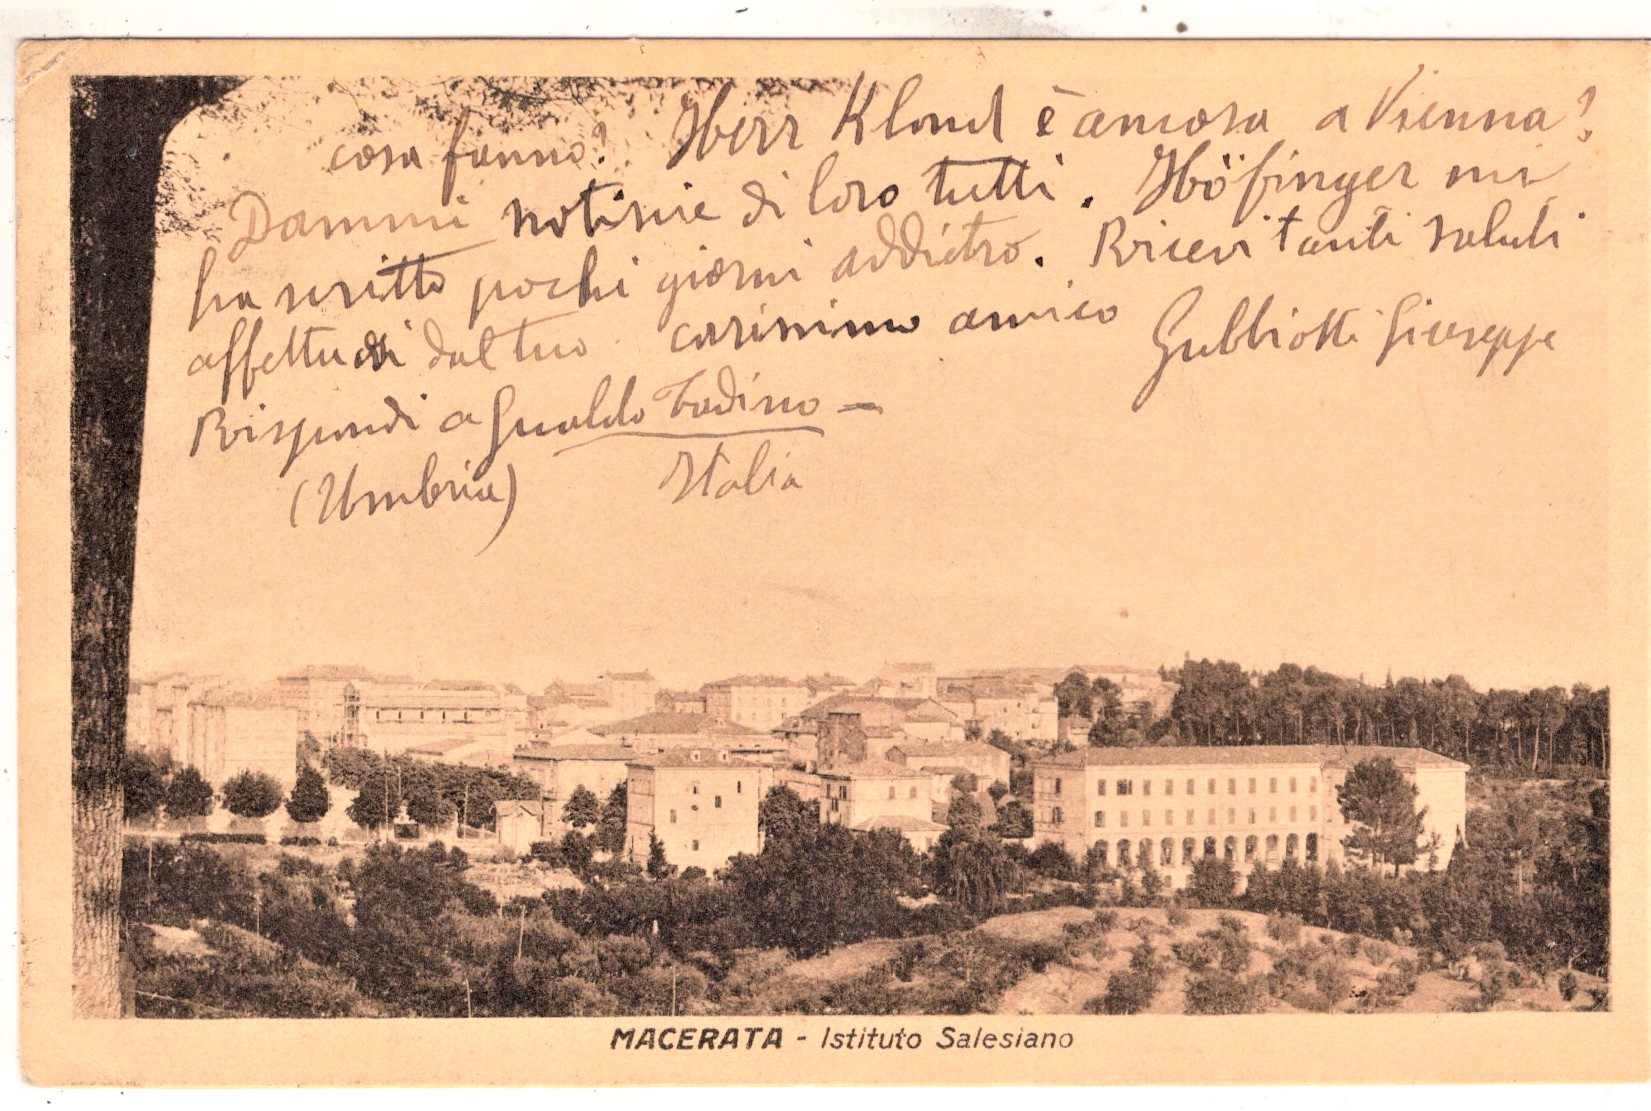 cosa fanno? Herr Klond è ancora a Vienna?
Dammi notizie di loro tutti. Höfinger mi
ha scritto pochi giorni addietro. Ricevi tanti saluti
affettuosi dal tuo carissimo amico Gubbiotti Giuseppe
Rispondi a Gualdo Tadino —
(Umbria) Italia
MACERATA - Istituto Salesiano